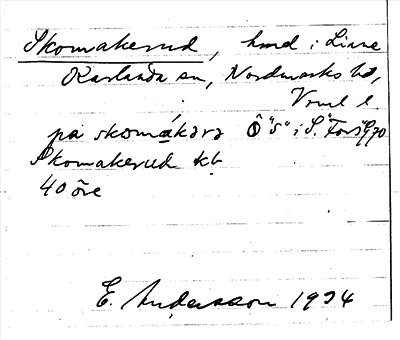 Skomakerud, hmd i Liane
Karlanda sn, Nordmarks hd,
Vrml l
på skomákərə "S" i S. "Fors"
Skomakerud kb
40 öre
E. Andersson 1934